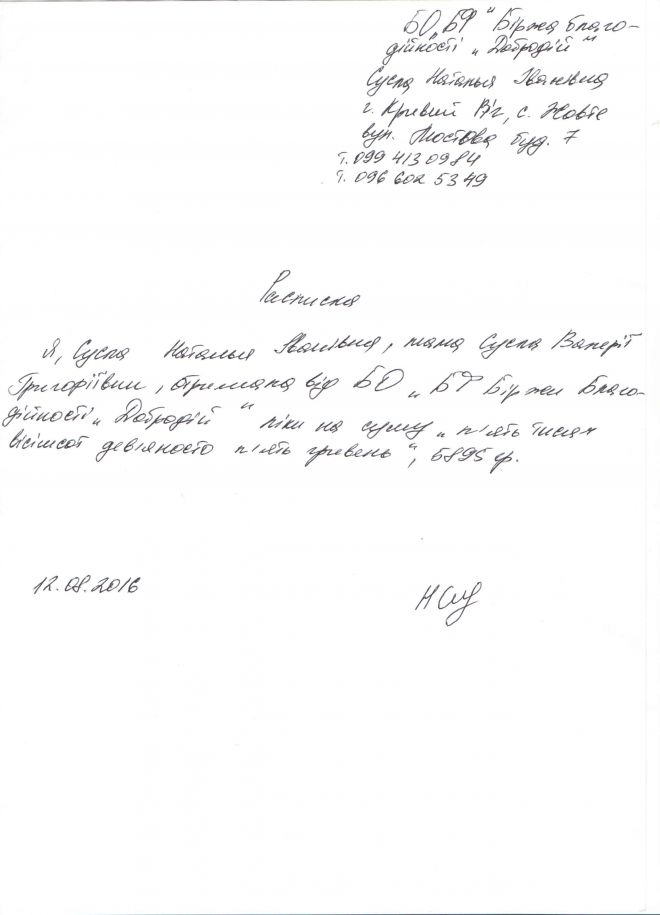 БО „БФ" Біржа благо-
дійності „Добродій"
Сусла Наталья Іванівна
г. Кривий Ріг, с. Жовте
вул. Мостова буд. 7
т. 099 413 09 84
т. 096 602 53 49
Расписка
Я, Сусла Наталья Іванівна, мама Сусла Валерії
Григоріївни, отримала від БО „БФ Біржи Благо-
дійності „Добродій" ліки на суму „п'ять тисяч
вісімсот дев'яносто п'ять гривень", 5895 гр.
12.08.2016